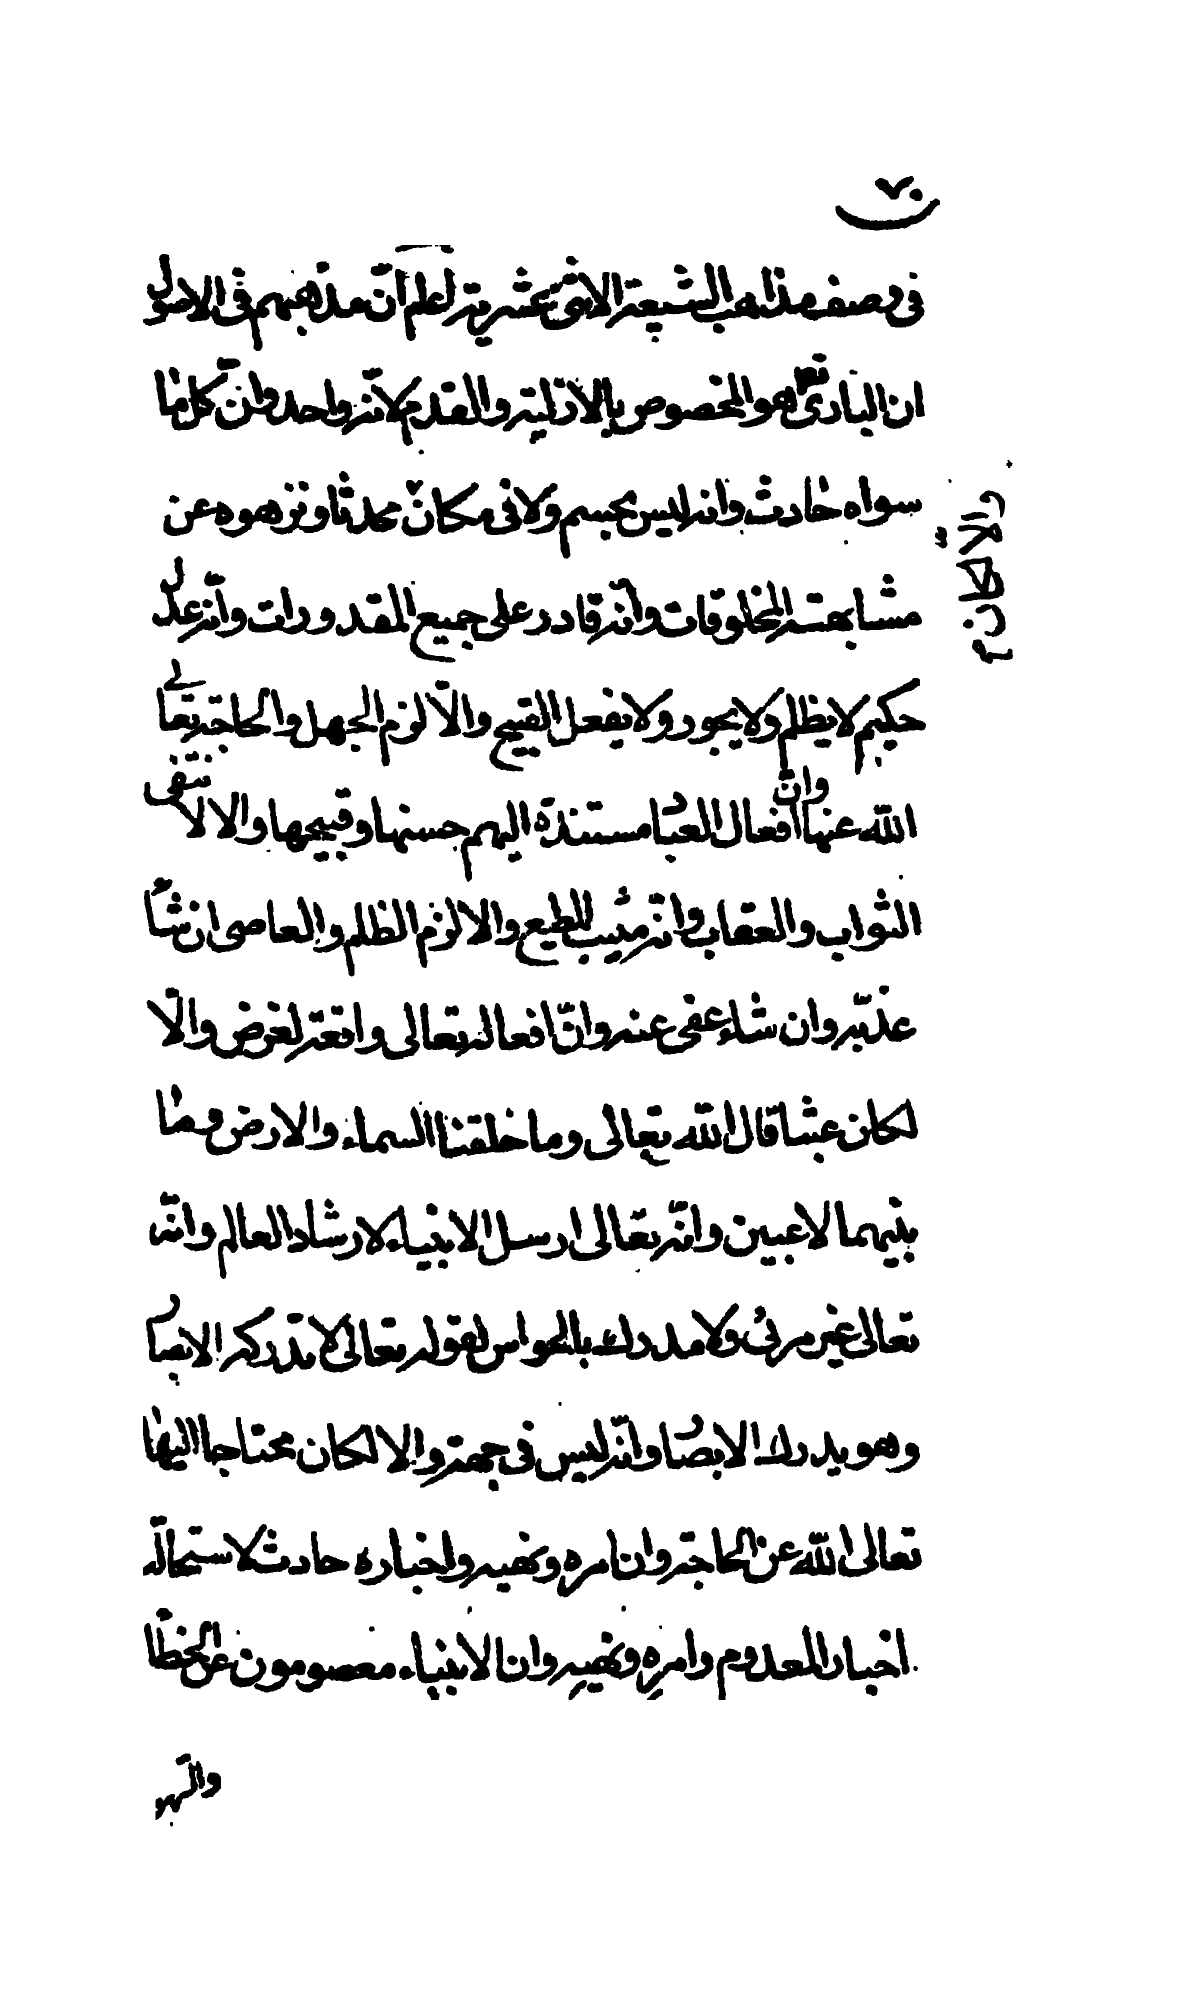 ٧٠
في وصف مذاهب الشيعة الاثنى عشرية اعلم أنّ مذهبهم في الاصول
ان الباري تعالى هو المخصوص بالازلية والقدم لانّه واحد وانّ كل ما
سواه حادث وانه ليس بجسم ولا في مكان
والّا لكان محدثا ونزهوه عن
مشابهته المخلوقات وانّه قادر على جميع المقدورات وانّه عدل
حكيم لا يظلم ولا يجور ولا يفعل القبيح والّا لزم الجهل والحاجة تعالى
الله عنها وانّ افعال العباد مستندة اليهم حسنها وقبيحها والا لانتفى
الثواب والعقاب وانّه مثيب للطيع والا لزم الظلم والعاصى ان شأ
عذبه وان شاء عفى عنه وانّ افعاله تعالى واقعة لغرض والّا
لكان عبثا قال الله تعالى وما خلقنا السماء والارض وما
بينهما لاعبين وانّه تعالى ارسل الانبياء لارشاد العالم وانّه
تعالى غير مرئى ولا مدرك بالحواس لقوله تعالى لا تدركه الابصار
وهو يدرك الابصار وانّه ليس في جهة والا لكان محتاجا اليها
تعالى الله عن الحاجة وان امره ونهيه واخباره حادث لاستحالة
اخبار المعدوم وامره ونهيه وان الانبياء معصومون عن الخطأ
والسهو